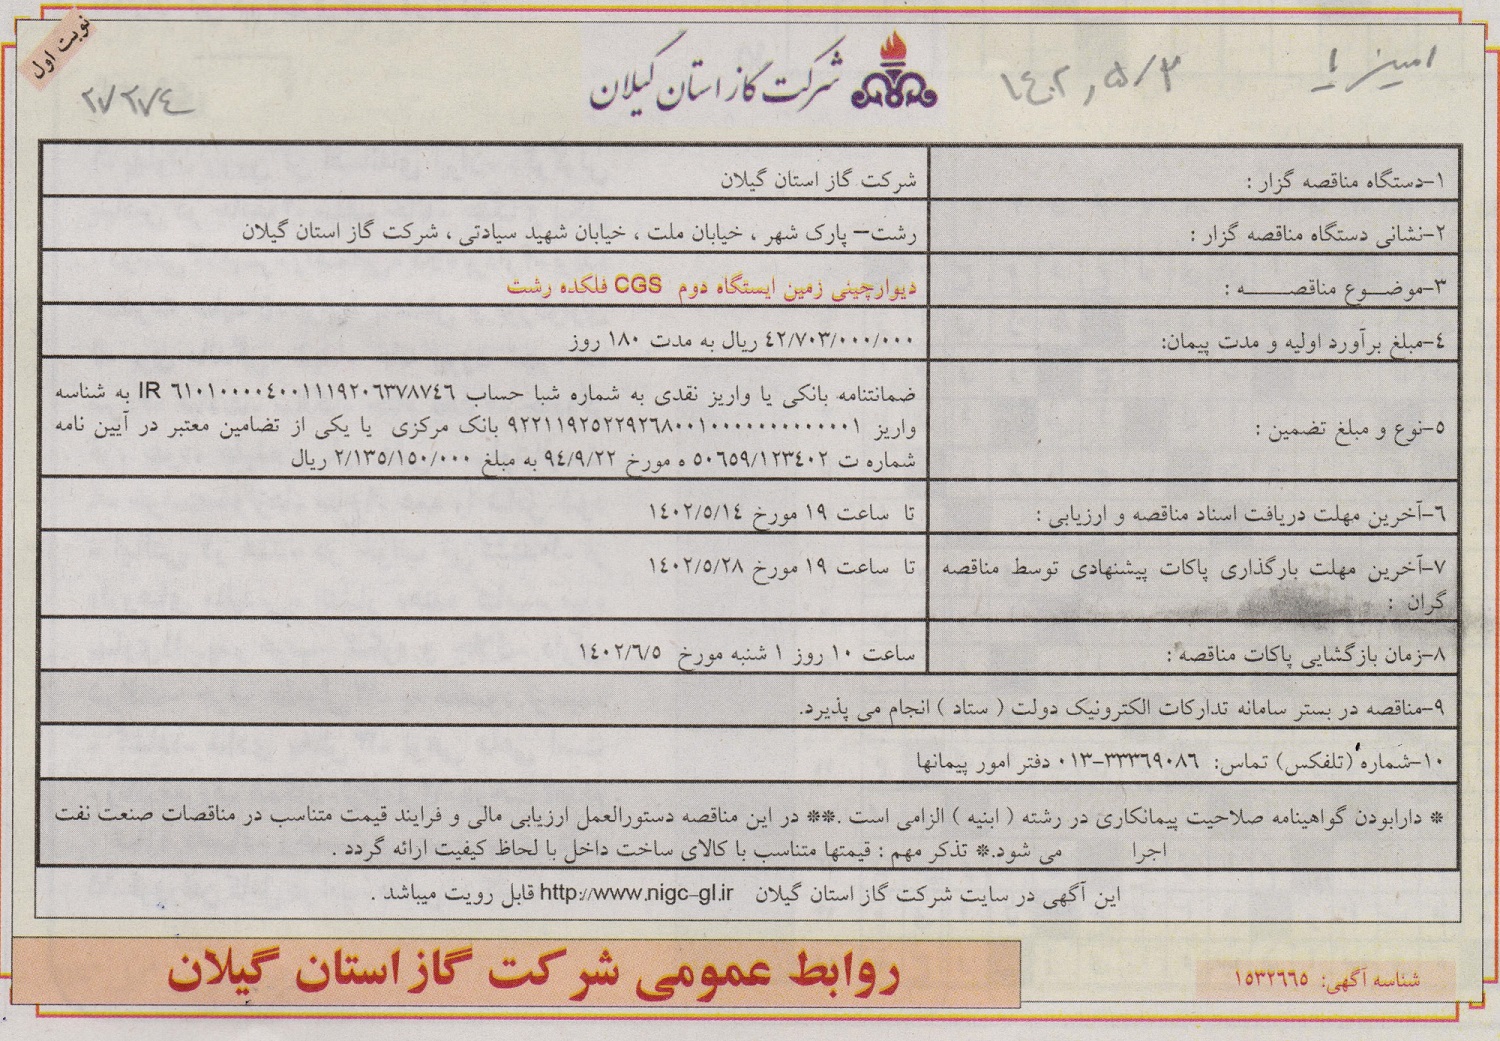 نوبت اول
شرکت گاز استان گیلان
۱۴۰۲,۵/۳
۲۷۲۷۴
۱-دستگاه مناقصه گزار :
شرکت گاز استان گیلان
۲-نشانی دستگاه مناقصه گزار :
رشت– پارک شهر ، خیابان ملت ، خیابان شهید سیادتی ، شرکت گاز استان گیلان
۳-موضـــوع مناقصـــــــه :
دیوارچینی زمین ایستگاه دوم CGS فلکده رشت
۴-مبلغ برآورد اولیه و مدت پیمان:
۴۲/۷۰۳/۰۰۰/۰۰۰ ریال به مدت ۱۸۰ روز
۵-نوع و مبلغ تضمین :
ضمانتنامه بانکی یا واریز نقدی به شماره شبا حساب IR ۶۱۰۱۰۰۰۰۴۰۰۱۱۱۹۲۰۶۳۷۸۷۴۶ به شناسه
واریز ۹۲۲۱۱۹۲۵۲۲۹۲۶۸۰۰۱۰۰۰۰۰۰۰۰۰۰۰۰۰۱ بانک مرکزی یا یکی از تضامین معتبر در آیین نامه
شماره ت ۵۰۶۵۹/۱۲۳۴۰۲ ه مورخ ۹۴/۹/۲۲ به مبلغ ۲/۱۳۵/۱۵۰/۰۰۰ ریال
۶-آخرین مهلت دریافت اسناد مناقصه و ارزیابی :
تا ساعت ۱۹ مورخ ۱۴۰۲/۵/۱۴
۷-آخرین مهلت بارگذاری پاکات پیشنهادی توسط مناقصه
گران :
تا ساعت ۱۹ مورخ ۱۴۰۲/۵/۲۸
۸-زمان بازگشایی پاکات مناقصه :
ساعت ۱۰ روز ۱ شنبه مورخ ۱۴۰۲/۶/۵
۹-مناقصه در بستر سامانه تدارکات الکترونیک دولت ( ستاد ) انجام می پذیرد.
۱۰-شماره (تلفکس) تماس: ۳۳۳۶۹۰۸۶-۰۱۳ دفتر امور پیمانها
* دارابودن گواهینامه صلاحیت پیمانکاری در رشته ( ابنیه ) الزامی است .** در این مناقصه دستورالعمل ارزیابی مالی و فرایند قیمت متناسب در مناقصات صنعت نفت
اجرا می شود.* تذکر مهم : قیمتها متناسب با کالای ساخت داخل با لحاظ کیفیت ارائه گردد .
این آگهی در سایت شرکت گاز استان گیلان http://www.nigc-gl.ir قابل رویت میباشد .
روابط عمومی شرکت گاز استان گیلان
شناسه آگهی: ۱۵۳۲۶۶۵